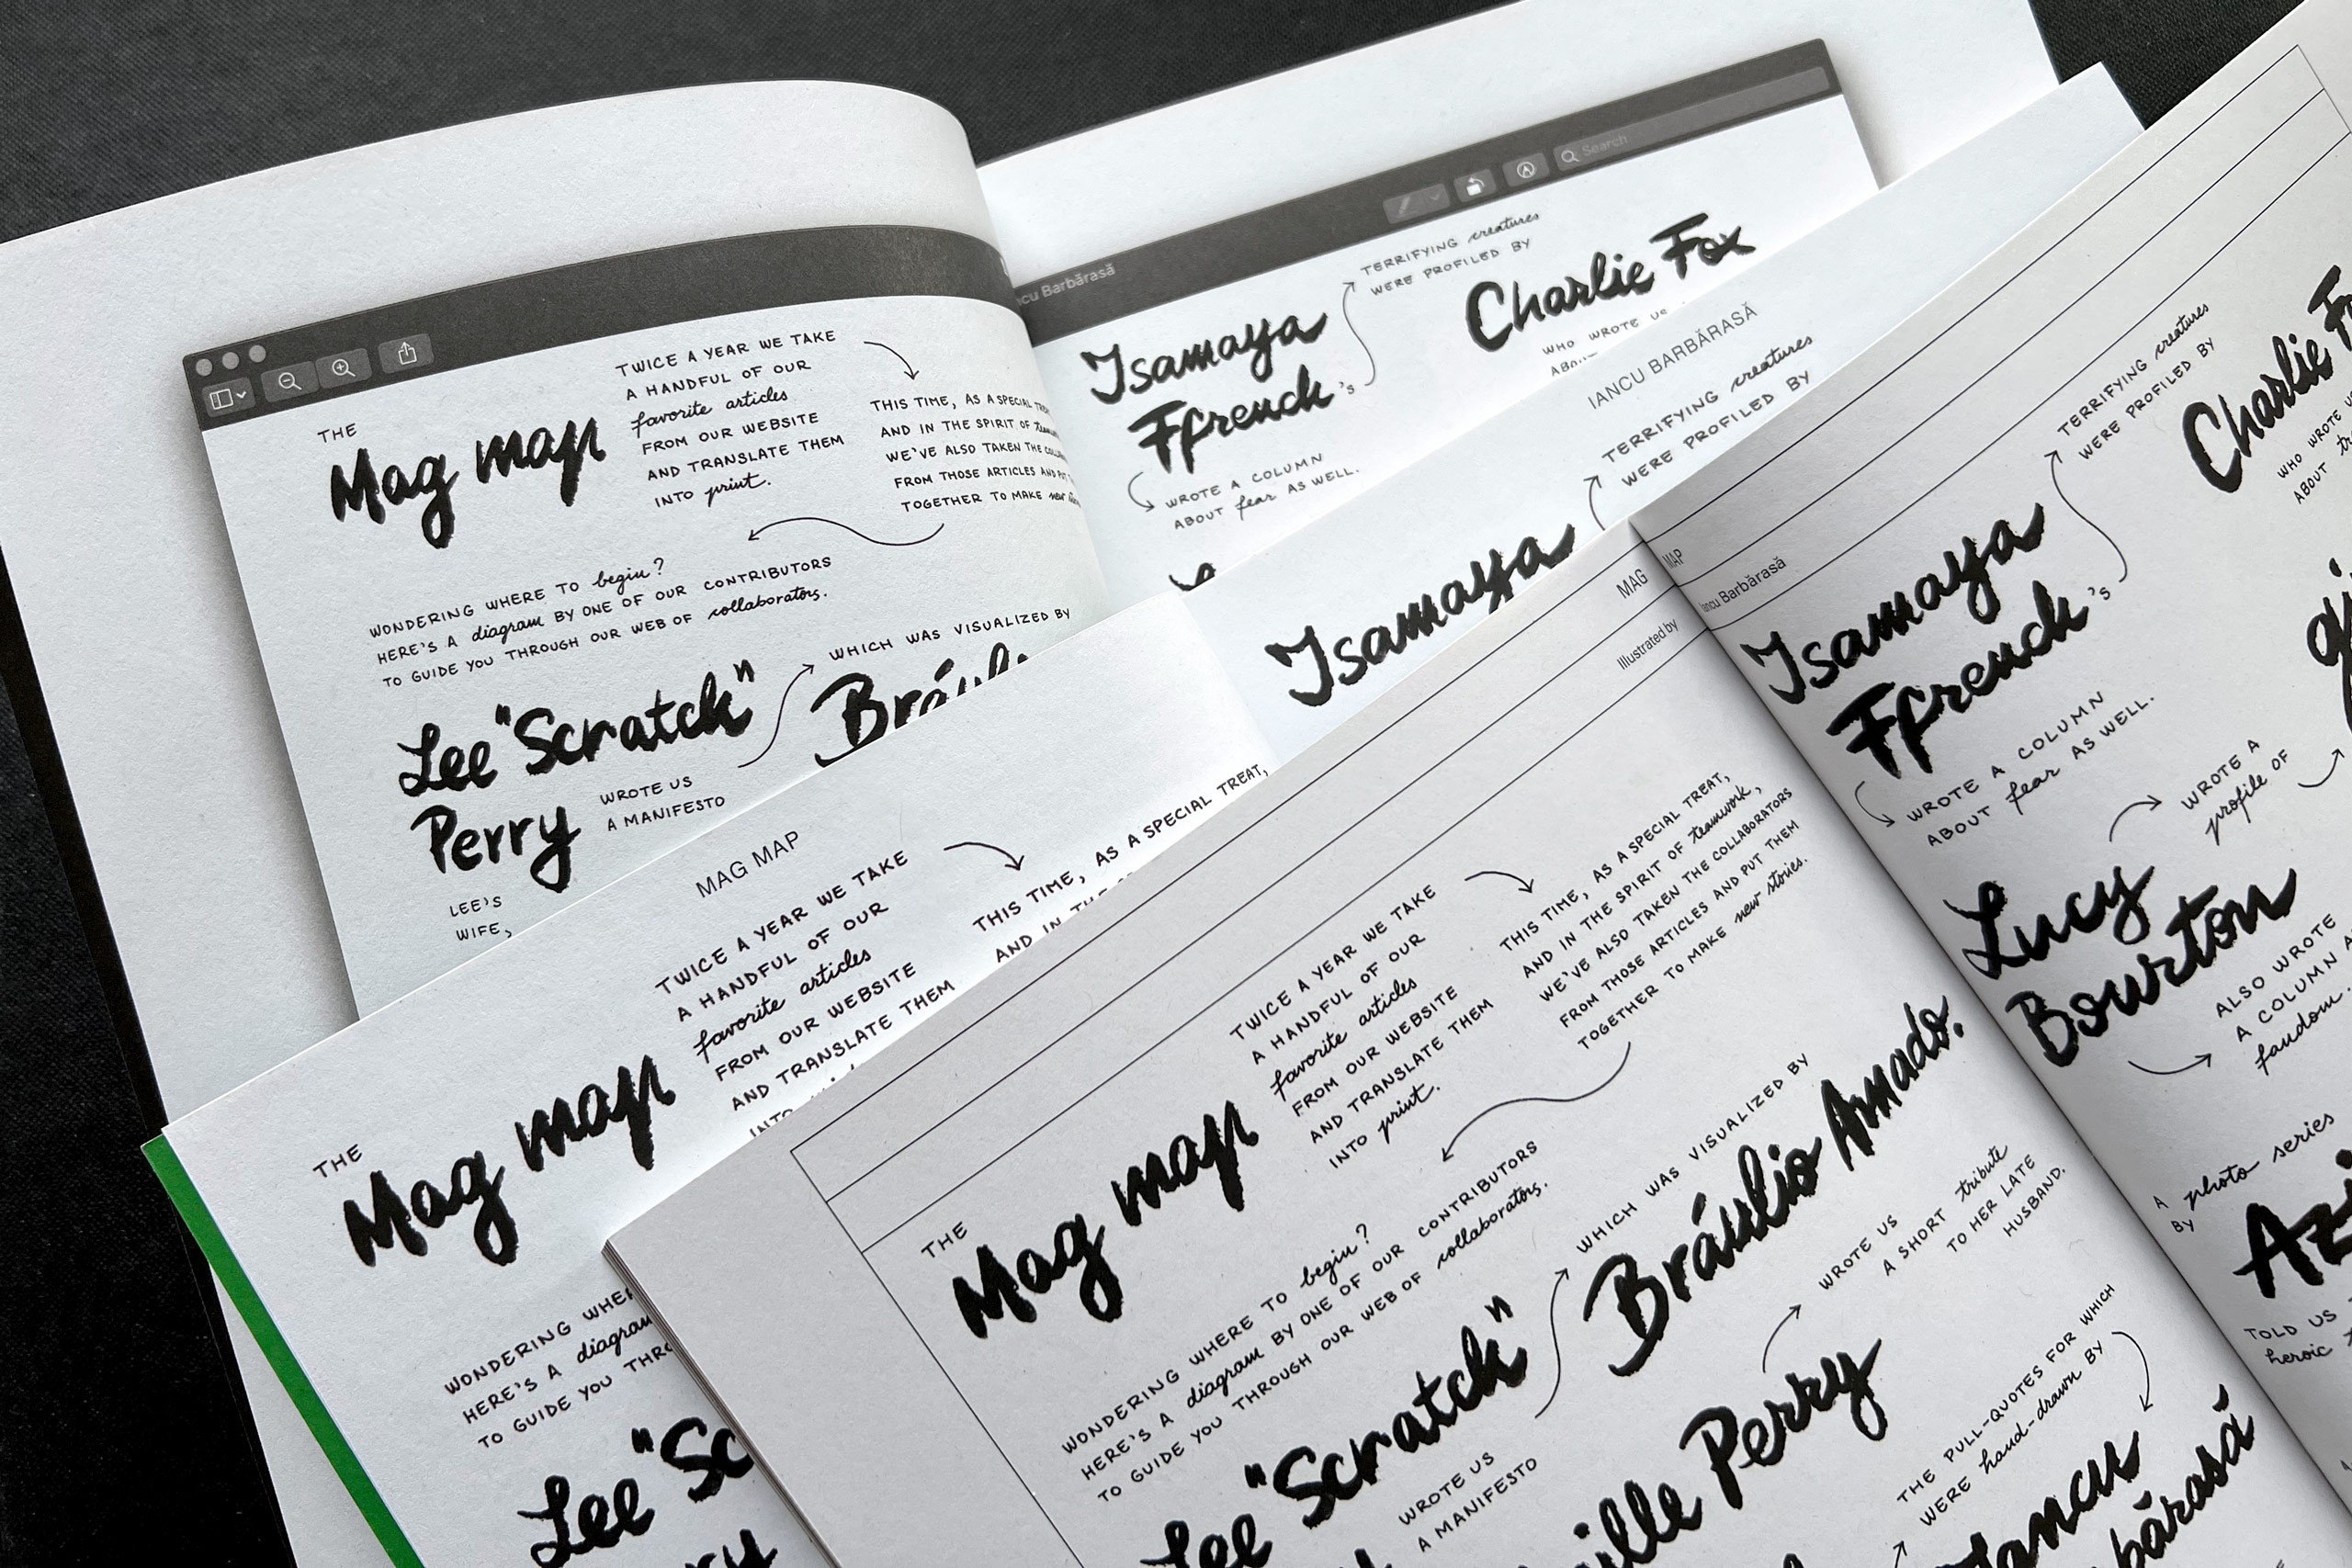 Search
ncu Barbărasă
THE
Mag map
TWICE A YEAR WE TAKE
A HANDFUL OF OUR
favorite articles
FROM OUR WEBSITE
AND TRANSLATE THEM
INTO print.
THIS TIME, AS A SPECIAL
AND IN THE SPIRIT OF
WE'VE ALSO TAKEN THE
FROM THOSE ARTICLES AND PUT
TOGETHER TO MAKE new
WONDERING WHERE TO begin?
HERE'S A diagram BY ONE OF OUR CONTRIBUTORS
TO GUIDE YOU THROUGH OUR WEB OF collaborators.
Lee "Scratch"
Perry
WROTE US
A MANIFESTO
WHICH WAS VISUALIZED BY
LEE'S
WIFE,
Isamaya
Ffrench's
TERRIFYING creatures
WERE PROFILED BY
Charlie Fox
WHO WROTE US
WROTE A COLUMN
ABOUT fear AS WELL.
MAG MAP
IANCU BARBĂRASĂ
THE
Mag map
TWICE A YEAR WE TAKE
A HANDFUL OF OUR
favorite articles
FROM OUR WEBSITE
AND TRANSLATE THEM
INTO
THIS TIME, AS A SPECIAL TREAT,
AND IN THE
WONDERING
HERE'S A diagram
TO GUIDE YOU
Lee "Sc
Isamaya
TERRIFYING creatures
WERE PROFILED BY
MAG MAP
Illustrated by Iancu Barbărasă
THE
Mag map
TWICE A YEAR WE TAKE
A HANDFUL OF OUR
favorite articles
FROM OUR WEBSITE
AND TRANSLATE THEM
INTO print.
THIS TIME, AS A SPECIAL TREAT,
AND IN THE SPIRIT OF teamwork,
WE'VE ALSO TAKEN THE COLLABORATORS
FROM THOSE ARTICLES AND PUT THEM
TOGETHER TO MAKE new stories.
WONDERING WHERE TO begin?
HERE'S A diagram BY ONE OF OUR CONTRIBUTORS
TO GUIDE YOU THROUGH OUR WEB OF collaborators.
Lee "Scratch"
WROTE US
A MANIFESTO
WHICH WAS VISUALIZED BY
Bráulio Amado.
WROTE US
A SHORT tribute
TO HER LATE
HUSBAND.
ille Perry
THE PULL-QUOTES FOR WHICH
WERE hand-drawn BY
Iancu
bărasă
Isamaya
Ffrench's
TERRIFYING creatures
WERE PROFILED BY
Charlie F
WHO WROTE
ABOUT
WROTE A COLUMN
ABOUT fear AS WELL.
Lucy
Bourton
WROTE A
profile OF
ALSO WROTE
A COLUMN
fandom.
A photo series
BY
Az
TOLD US
heroic